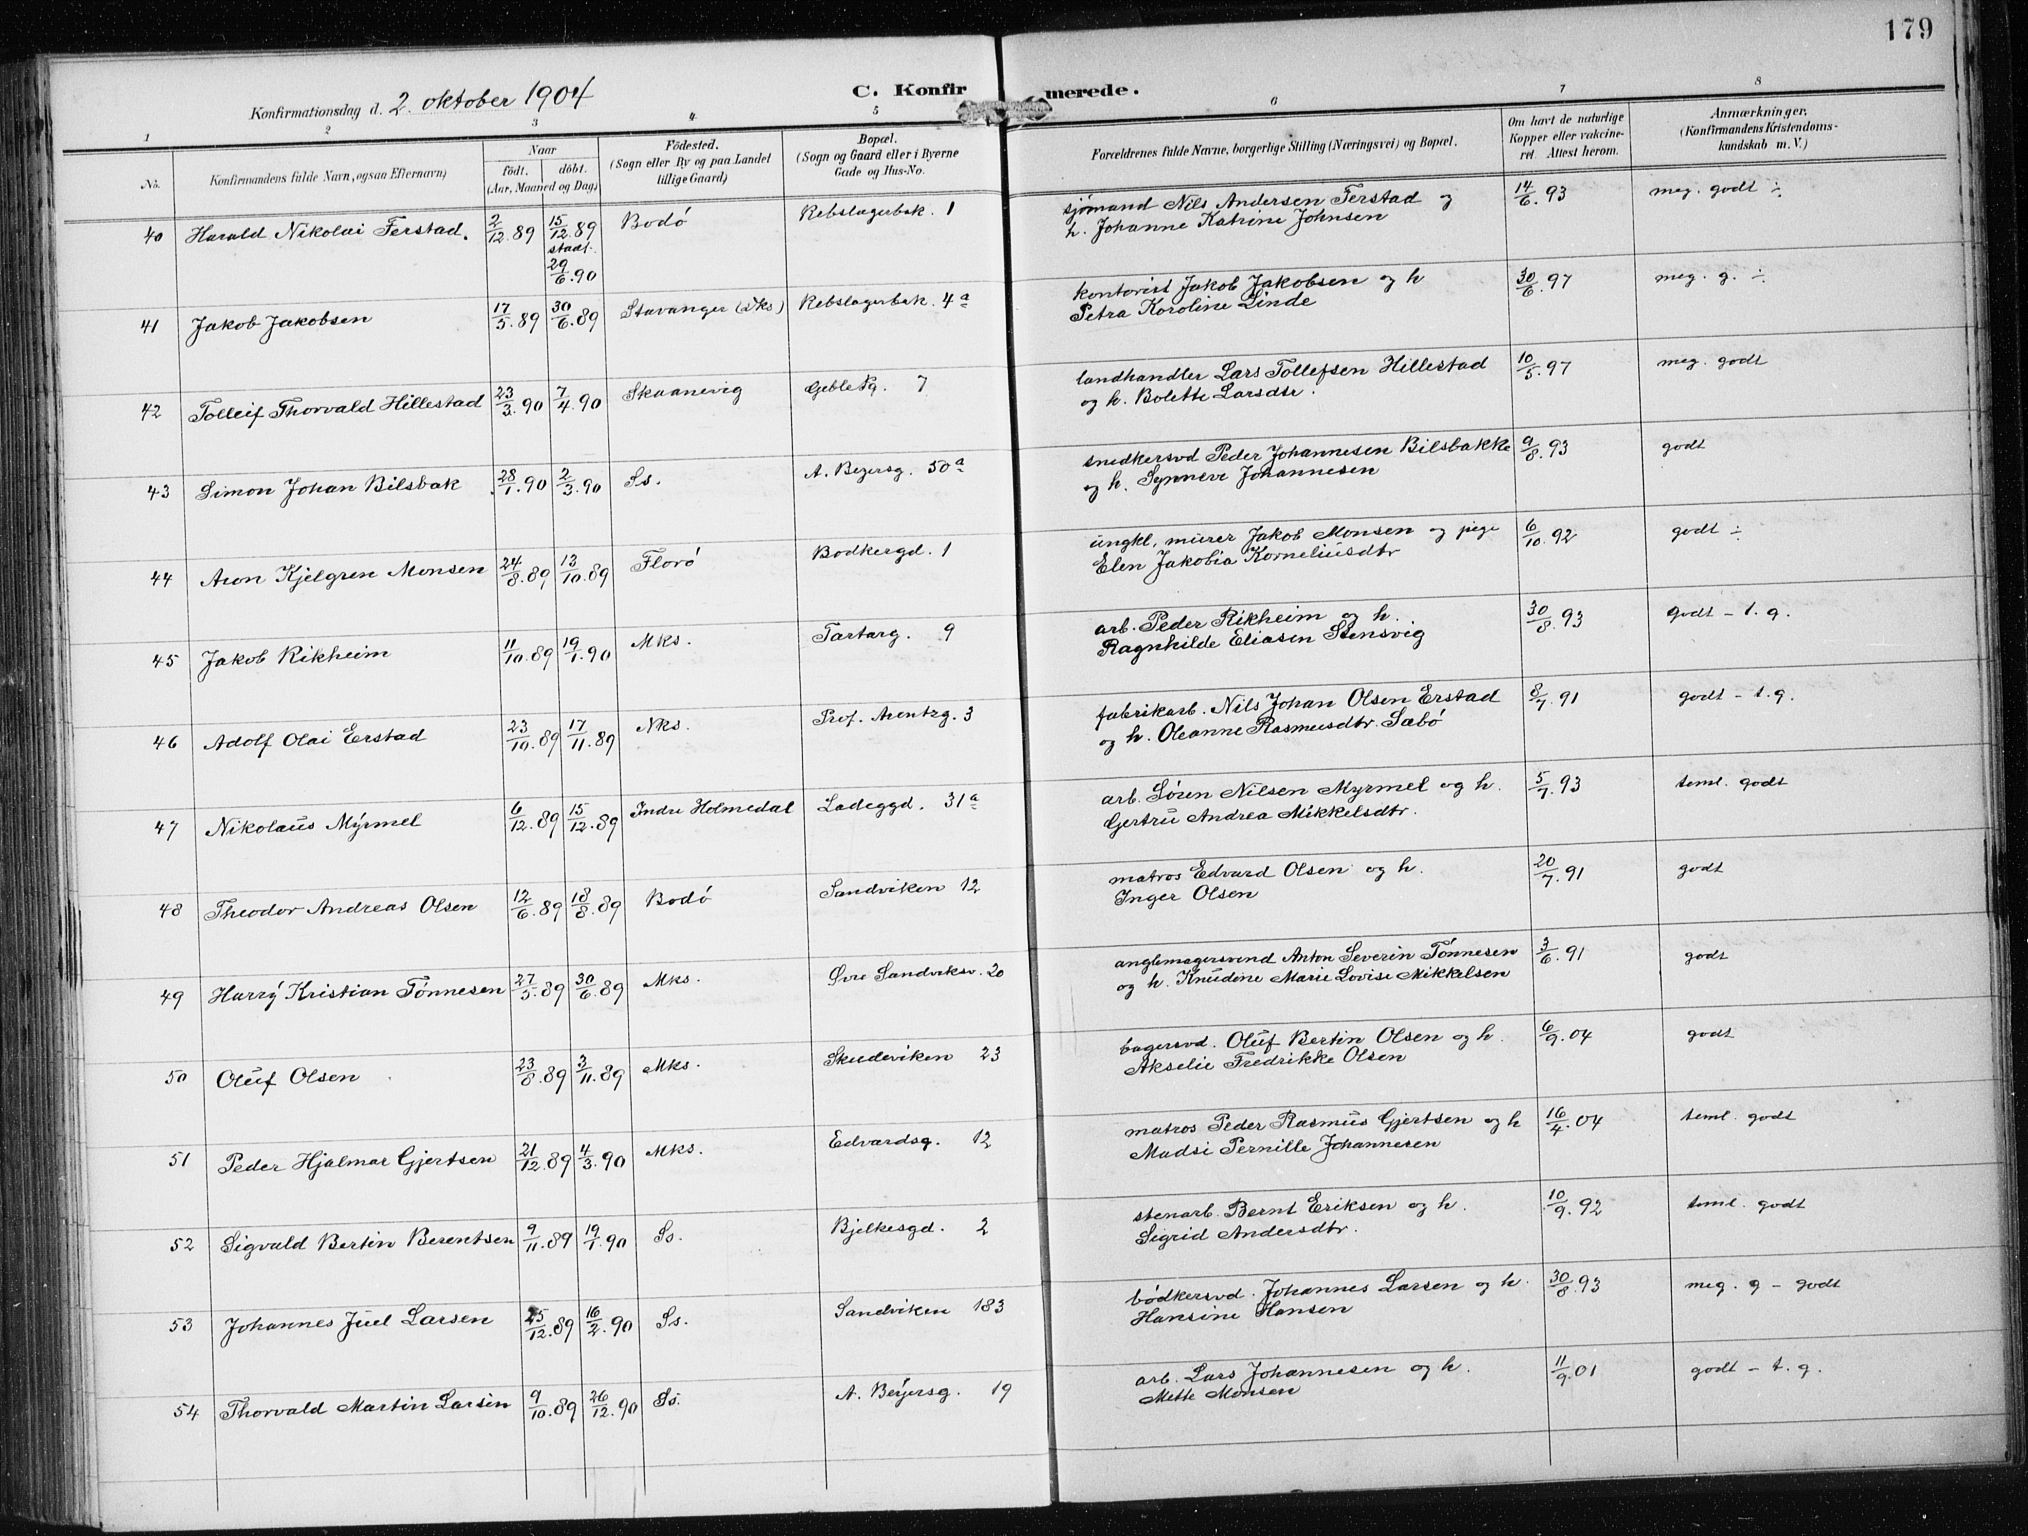 179
Konfirmationsdag d. 2. oktober 1904
C. Konfirmerede.
1 2 3 4 5 6 7 8
No. Konfirmandens fulde Navn, ogsaa Efternavn) Naar födt. döbt. (Aar, Maaned og Dag) Födested. (Sogn eller By og paa Landet tillige Gaard) Bopæl. (Sogn og Gaard eller i Byerne Gade og Hus-No. Forældrenes fulde Navne, borgerlige Stilling (Næringsvei) og Bopæl. Om havt de naturlige Kopper eller vakcineret. Attest herom. Anmærkninger. (Konfirmandens Kristendomskundskab m. V.)
40 Harald Nikolai Ferstad. 2/12.89 15/12.89 stadf. 29/6.90 Bodó Rebslagerbak. 1 sjömand Nils Andersen Ferstad og
h. Johanne Katrine Johnsen 14/6.93 meg. godt ÷
41 Jakob Jakobsen 17/5.89 30/6.89 Stavanger (Dks) Rebslagerbak. 4a kontorist Jakob Jakobsen og h
Petra Karoline Linde 30/6.97 meg. g. ÷
42 Tolleif Thorvald Hillestad 23/3.90 7/4.90 Skaanevig Geble Pg. 7 landhandler Lars Tollefsen Hillestad
og h. Bolette Larsdtr. 10/5.97 meg. godt
43 Simon Johan Bilsbak 28/1.90 2/3.90 Ss. A. Beyersg. 50a snedkersvd Peder Johannesen Bilsbakke
og h. Synneve Johannesen 9/8.93 godt
44 Aron Kjelgren Monsen 24/8.89 13/10.89 Floró Bodkergd. 1 ungkl. murer Jakob Monsen og pige
Elen Jakobia Korneliusdtr 6/10.92 godt ÷
45 Jakob Rikheim 11/10.89 19/1.90 Mks. Tartarg. 9 arb. Peder Rikheim og h.
Ragnhilde Eliasen Stensvig 30/8.93 godt - t. g.
46 Adolf Olai Erstad 23/10.89 17/11.89 Nks. Prof. Arentzg. 3 fabrikarb. Nils Johan Olsen Erstad
og h. Oleanne Rasmusdtr. Sæbó 8/7.91 godt - t. g.
47 Nikolaus Myrmel 6/12.89 15/12.89 Indre Holmedal Ladeggd. 31a arb. Sören Nilsen Myrmel og h.
Gjertru Andrea Mikkelsdtr. 5/7.93 teml. godt
48 Theodor Andreas Olsen 12/6.89 18/8.89 Bodó Sandviken 12 matros Edvard Olsen og h.
Inger Olsen 20/7.91 godt
49 Harry Kristian Tönnesen 27/5.89 30/6.89 Mks. Øvre Sandviksv. 20 anglemagersvend Anton Severin Tönnesen
og h. Knudine Marie Lovise Mikkelsen 3/6.91 godt
50 Oluf Olsen 23/8.89 3/11.89 Mks. Skudeviken 23 bagersvd. Oluf Bertin Olsen og h.
Akselie Fredrikke Olsen 6/9.04 godt
51 Peder Hjalmar Gjertsen 21/12.89 4/3.90 Mks. Edvardsg. 12 matros Peder Rasmus Gjertsen og h
Madsi Pernille Johannesen 16/4.04 teml. godt
52 Sigvald Bertin Berentsen 9/11.89 19/1.90 Ss. Bjelkesgd. 2 stenarb. Bernt Eriksen og h.
Sigrid Andersdtr. 10/9.92 teml. godt
53 Johannes Juel Larsen 25/12.89 16/2.90 Ss. Sandviken 183 bödkersvd. Johannes Larsen og h.
Hansine Hansen 30/8.93 meg. g - godt
54 Thorvald Martin Larsen 9/10.89 26/12.90 Ss. A. Beyersg. 19 arb. Lars Johannesen og h.
Mette Monsen 11/9.01 godt - t. g.